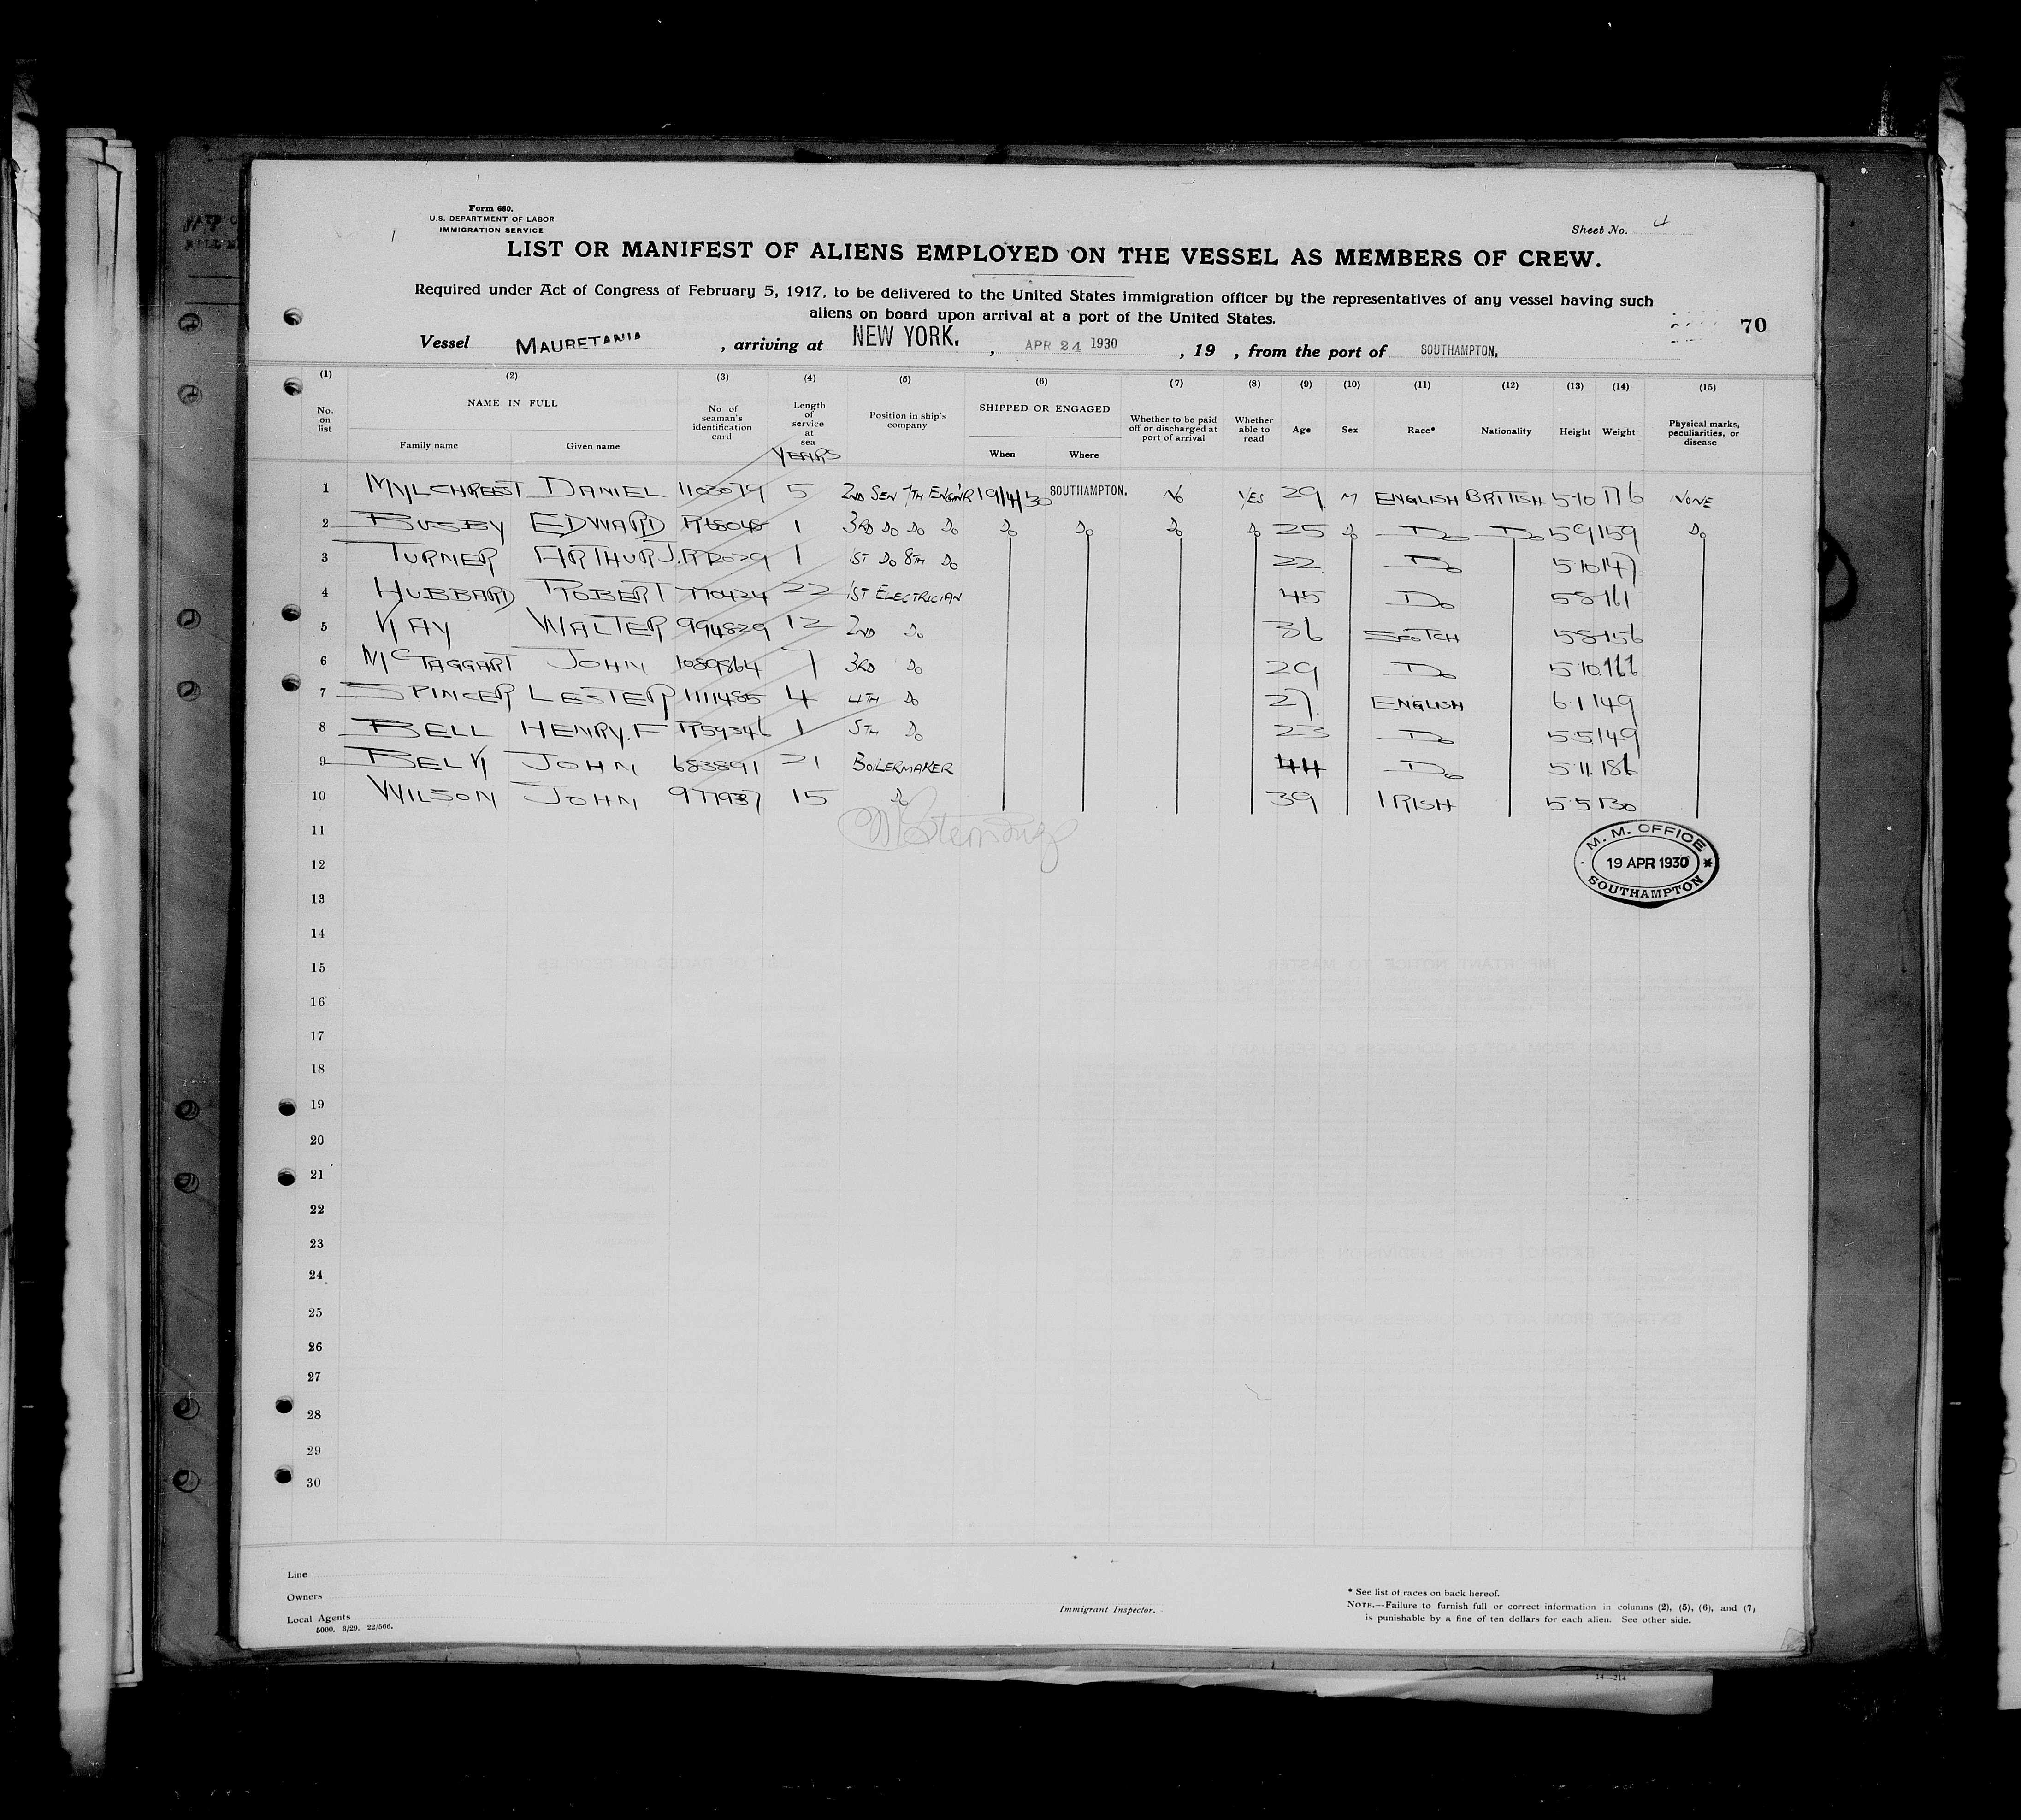 Form 680.
U.S. DEPARTMENT OF LABOR
IMMIGRATION SERVICE
Sheet No. 4
LIST OR MANIFEST OF ALIENS EMPLOYED ON THE VESSEL AS MEMBERS OF CREW.
Required under Act of Congress of February 5, 1917, to be delivered to the United States immigration officer by the representatives of any vessel having such
aliens on board upon arrival at a port of the United States.
70
Vessel MAURETANIA, arriving at NEW YORK., APR 24 1930, 19 , from the port of SOUTHAMPTON.
(1) (2) (3) (4) (5) (6) (7) (8) (9) (10) (11) (12) (13) (14) (15)
No. on list NAME IN FULL Family name Given name No of seaman's identification card Length of service at sea Position in ship's company SHIPPED OR ENGAGED When Where Whether to be paid off or discharged at port of arrival Whether able to read Age Sex Race* Nationality Height Weight Physical marks, peculiarities, or disease
YEARS
1 MYLCHREEST DANIEL 1103079 5 2ND SEN 7TH ENGNR 19/4/30 SOUTHAMPTON. NO YES 29 M ENGLISH BRITISH 5-10 176 NONE
2 BUSBY EDWARD 1 3RD DO DO DO DO DO DO DO 25 DO DO DO 5 9 159 DO
3 TURNER ARTHUR J. 1 1ST DO 8TH DO 22 DO 5 10 147
4 HUBBARD ROBERT 22 1ST ELECTRICIAN 45 DO 5 8 161
5 KAY WALTER 994829 12 2ND DO 36 SCOTCH 5 8 156
6 McTAGGART JOHN 1089864 7 3RD DO 29 DO 5 10 166
7 SPINCER LESTER 1111485 4 4TH DO 27 ENGLISH 6·1 149
8 BELL HENRY.F R59346 1 5TH DO 23 DO 5·5 149
9 BELK JOHN 683891 21 BOILERMAKER 44 DO 5·11 186
10 WILSON JOHN 971937 15 DO 39 IRISH 5·5 130
11
12
13
14
15
16
17
18
19
20
21
22
23
24
25
26
27
28
29
30
M. M. OFFICE
19 APR 1930
SOUTHAMPTON
Line
Owners
Local Agents
5000. 3/29. 22/566.
Immigrant Inspector.
* See list of races on back hereof.
NOTE.—Failure to furnish full or correct information in columns (2), (5), (6), and (7)
is punishable by a fine of ten dollars for each alien. See other side.
14—214